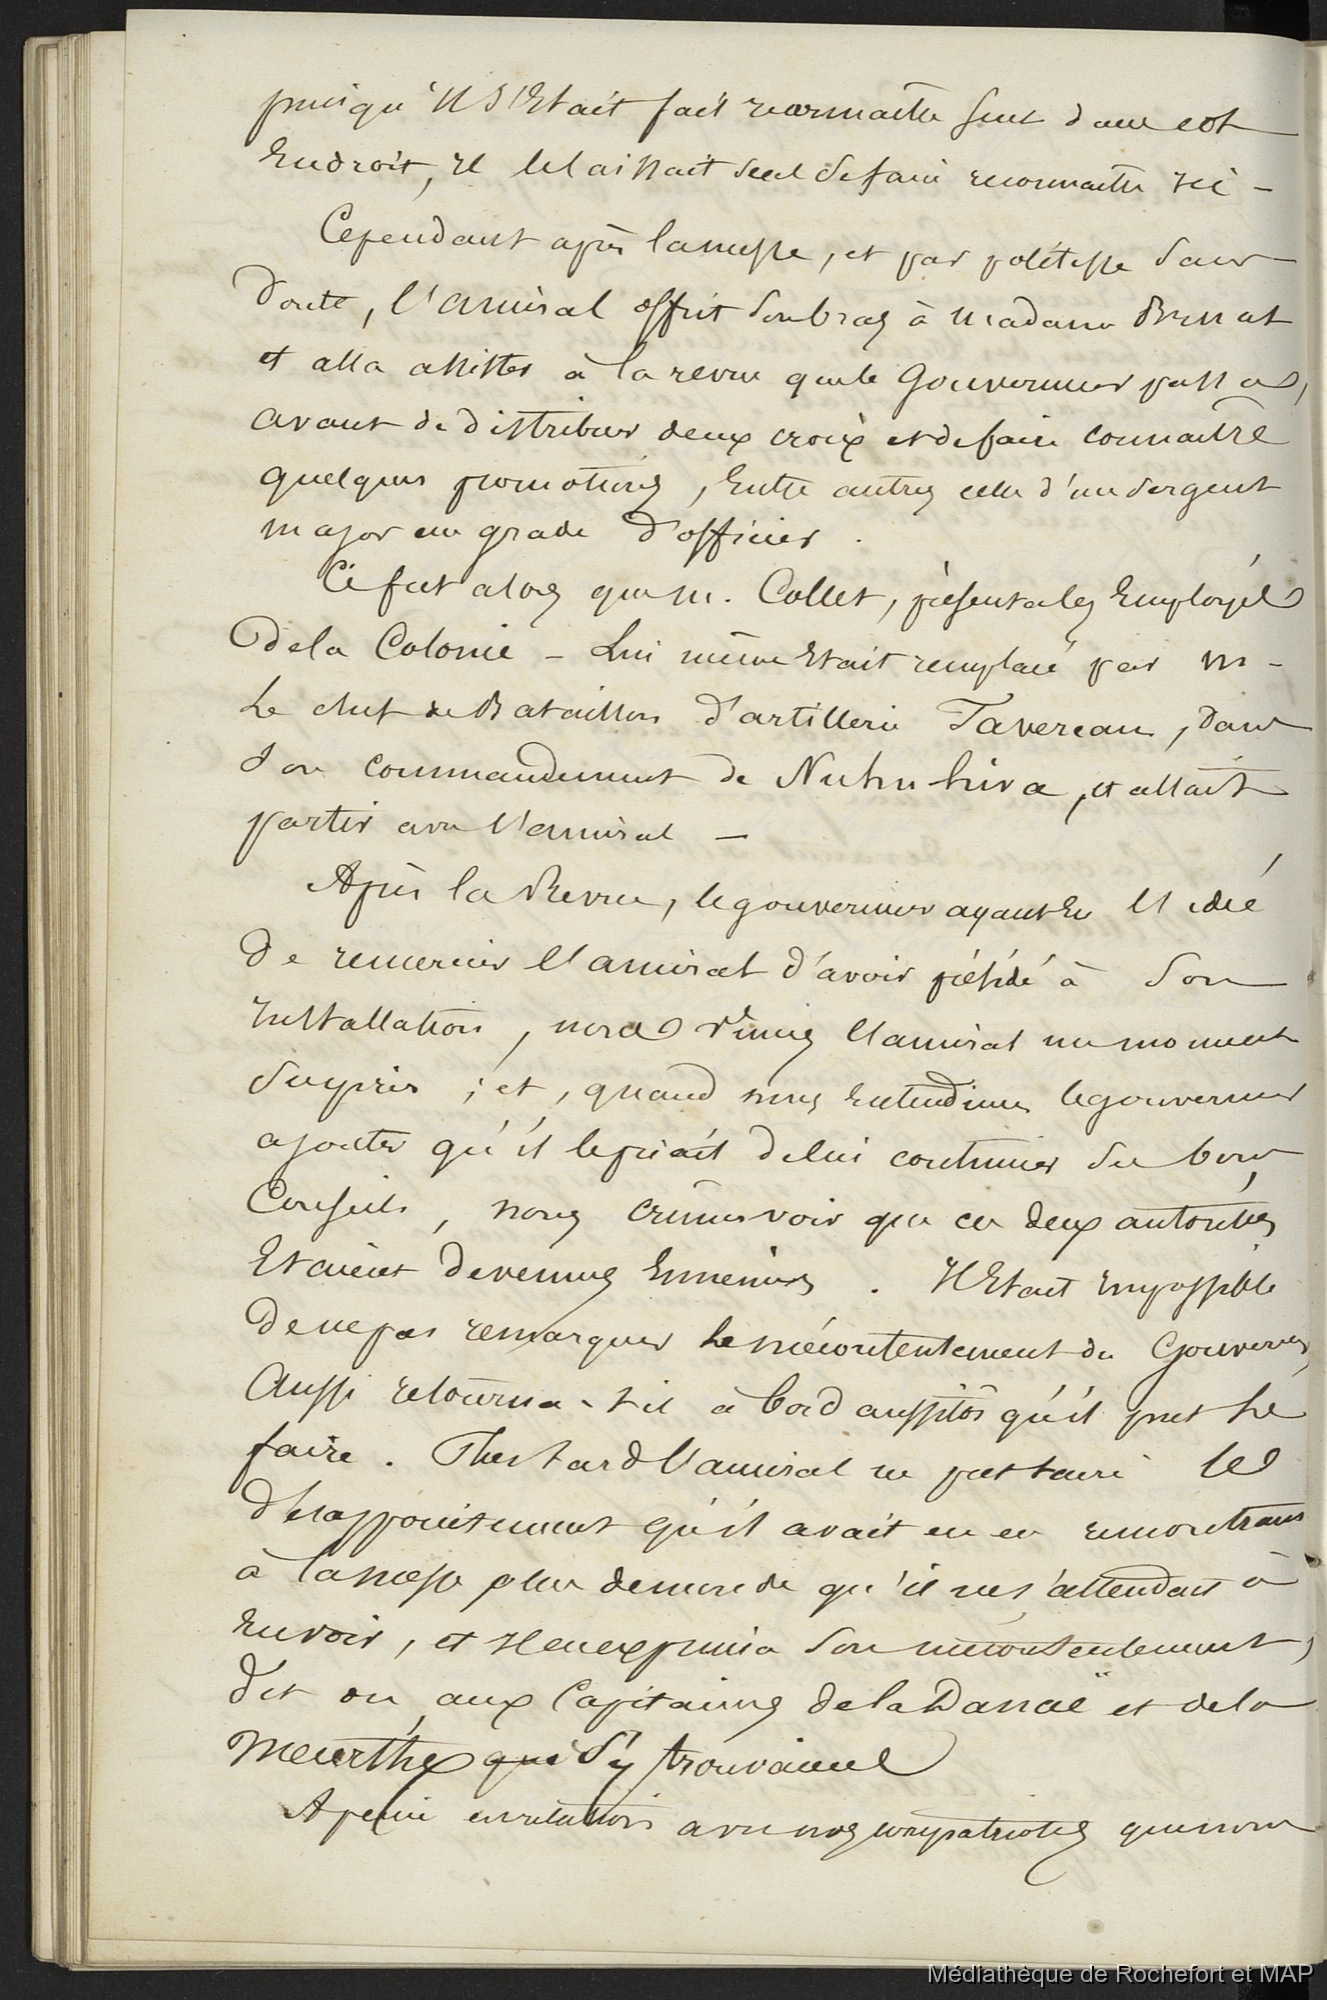 puisqu'il s'était fait reconnaitre seul dans cet
Endroit, il le laissait seul se faire reconnaitre ici -
Cependant après la messe, et par politesse sans
doute, l'amiral offrit son bras à Madame Bruat
et alla assister à la revue que le Gouverneur passa,
avant de distribuer deux croix et de faire connaître
quelques promotions, Entre autres celle d'un sergent
major au grade d'officier.
Ce fut alors que M. Collet, présenta les Employés
De la Colonie - Lui même Etait remplacé par M -
Le chef de Bataillon d'artillerie Tavereau, dans
son commandement de Nuhu hiva, et allait
partir avec l'amiral -
Après la Revue, le gouverneur ayant Eu l'idée
De remercier l'amiral d'avoir présidé à son
Installation, nous vîmes l'amiral un moment
surpris ; et, quand nous Entendimes le gouverneur
ajouter qu'il le priait de lui continuer ses bons
Conseils, nous crûmes voir que ces deux autorités
Etaient devenues Ennemies. Il Etait Impossible
De ne pas remarquer le mécontentement du Gouverneur,
Aussi retourna-t-il à bord aussitôt qu'il put le
faire. Plus tard l'amiral ne put taire le
désappointement qu'il avait eu en rencontrant
à la messe plus de monde qu'il ne s'attendait à
En voir, et Il en exprima son mécontentement,
dit on, aux Capitaines de la Danaë et de la
Meurthe qui s'y trouvaient
A peine en relations avec nos compatriotes que nous
Médiathèque de Rochefort et MAP